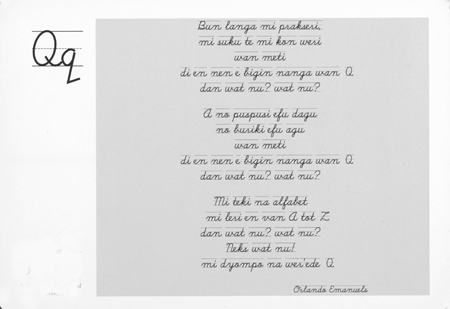 Qq
Bun langa mi prakseri,
mi suku te mi kon weri
wan meti
di en nen e bigin nanga wan Q
dan wat nu? wat nu?
A no puspusi efu dagu
no buriki efu agu
wan meti
di en nen e bigin nanga wan Q
dan wat nu? wat nu?
Mi teki na alfabet
mi leri en van A tot Z
dan wat nu? wat nu?
Neks wat nu!
mi dyompo na wer'ede Q
Orlando Emanuels